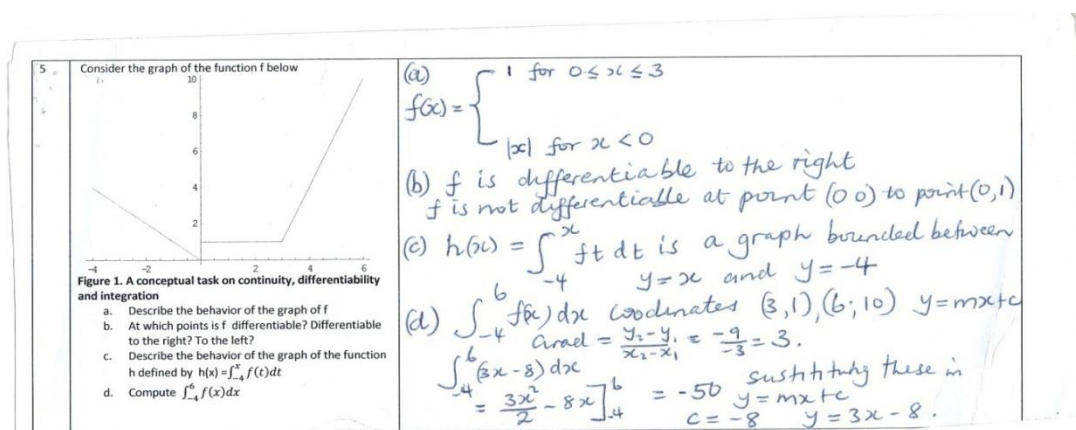 5
Consider the graph of the function f below
10
8
6
4
2
-4 -2 2 4 6
Figure 1. A conceptual task on continuity, differentiability
and integration
a. Describe the behavior of the graph of f
b. At which points is f differentiable? Differentiable
to the right? To the left?
c. Describe the behavior of the graph of the function
h defined by h(x) =∫₋₄ˣ f(t)dt
d. Compute ∫₋₄⁶ f(x)dx
(a)
f(x) = { 1 for 0 ≤ x ≤ 3
|x| for x < 0
(b) f is differentiable to the right
f is not differentiable at point (0 0) to point (0,1)
(c) h(x) = ∫₋₄ˣ ft dt is a graph bounded between
y = x and y = -4
(d) ∫₋₄⁶ f(x) dx Coodinates (3,1), (6; 10) y=mx+c
Grad = y₂-y₁/x₂-x₁ = -9/-3 = 3.
∫₋₄⁶ (3x - 8) dx
= 3x²/2 - 8x]₋₄⁶ = -50 these in
y = mx+c
c = -8 y = 3x - 8.